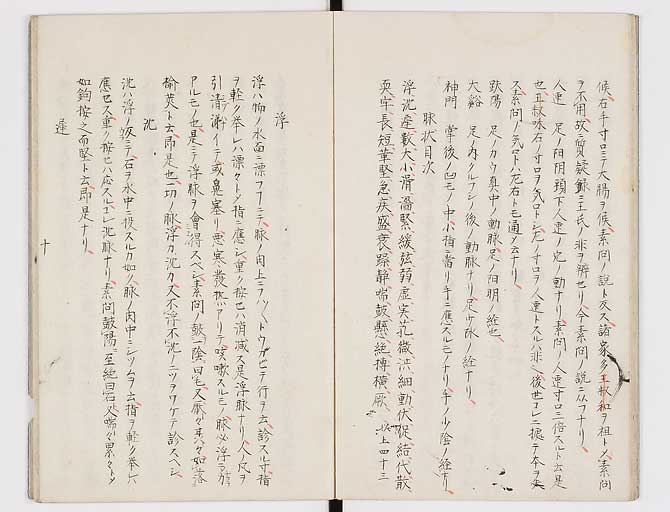 候右手寸口ニテ大腸ヲ候素問ノ説ト及ス諸家多王叔和ヲ祖トノ素問
ヲ不用故ニ質疑録ニ王氏ノ非ヲ辨セリ今素問ノ説ニ从フナリ
人迎 足ノ陽明頚下人迎ノ穴ノ動ナリ素問ノ人迎寸口三倍スルト云是
也王叔咊右ノ寸口ヲ気口トシ左ノ寸口ヲ人迎トスルハ非ヘ後世コレニ據テ本ヲ失
ス素問ノ気口トハ左右トモ通ノ云ナリ
趺陽 足ノカウ真中ノ動脉足ノ陽明ノ経也
太谿 足ノ内クルブシノ後ノ動脉ナリ足少陰ノ経ナリ
神門 掌後ノ凹モノ中小指ニ當リ手ニ應スルモノナリ手ノ少陰ノ経ナリ
脉状目次
浮沈遅數大小滑濇緊緩弦弱虚実芤微洪細動伏促結代散
耎牢長短革堅急疾盛衰躁静喘鼓懸絶摶横厥 以上四十三
浮
浮ハ物ノ水面ニ漂フ ニテ脉ノ肉上ニヲツ トウカビテ行ヲ云診スルニ寸指
ヲ軽ク挙レハ漂々トノ指ニ應シ重ク按セハ消减ス是浮脉ナリ人風ヲ
引清涕イテ或鼻塞リ悪寒發熱アリテ咳嗽スルモノ脉必浮ヲ
アルモノ也是ニテ浮脉ヲ會得スベシ素問ノ 陰曰毛又厭々 々如落
楡莢ト云即是也一切ノ脉浮カ沈カ又不浮不沈ノ三ツヲワケテ診スベシ
沈
沈ハ浮ノ ニテ石ヲ水中ニ投スルカ如ク脉ノ肉中ニシツムヲ云指ヲ軽ク挙レハ
應セス重ク按セハ応スルコレ沈脉ナリ素問鼓陽至絶曰石又喘々累々トノ
如鉤按之而堅ト云即是ナリ
遅
十